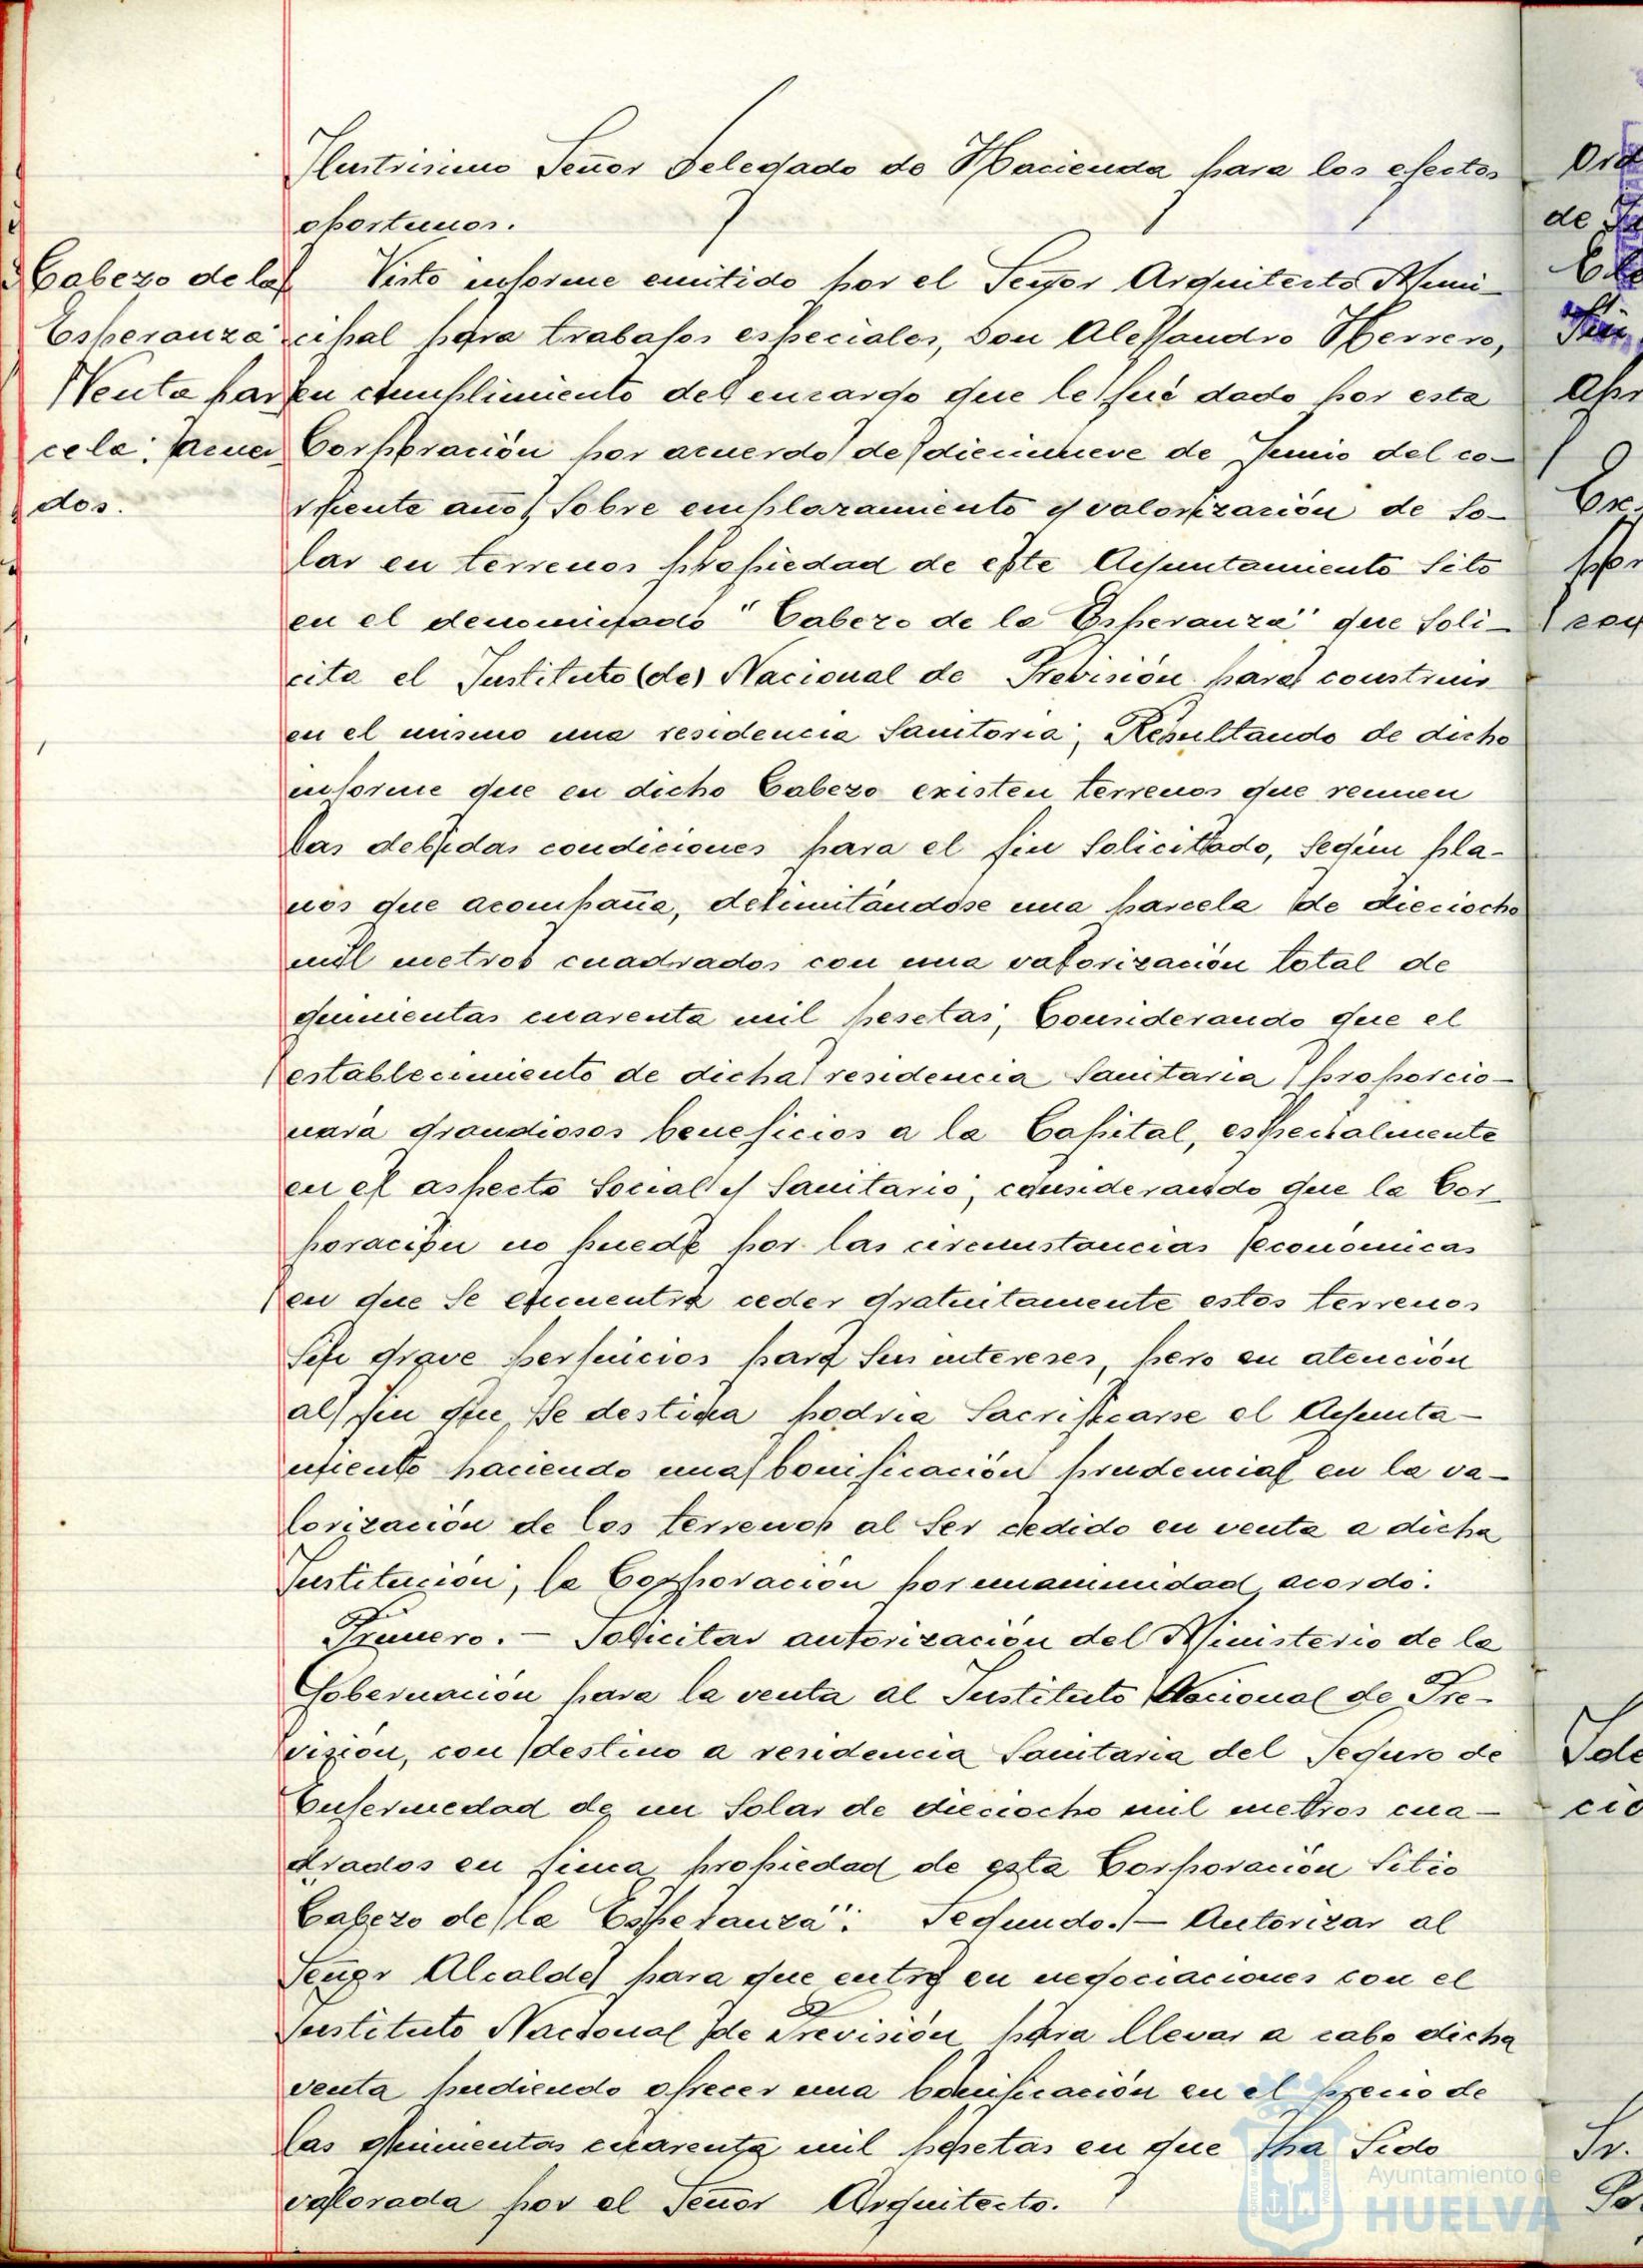 Ilustrisimo Señor Delegado de Hacienda para los efectos
oportunos.
Cabezo de la
Esperanza
Venta par
cela: Acuer
dos.
Visto informe emitido por el Señor Arquitecto Muni-
cipal para trabajos especiales, Don Alejandro Herrero,
en cumplimiento del encargo que le fué dado por esta
Corporación por acuerdo de diecinueve de Junio del co-
rriente año, sobre emplazamiento y valorización de so-
lar en terrenos propiedad de este Ayuntamiento sito
en el denominado "Cabezo de la Esperanza" que soli-
cita el Instituto (de) Nacional de Previsión para construir
en el mismo una residencia Sanitaria; Resultando de dicho
informe que en dicho Cabezo existen terrenos que reunen
las debidas condiciones para el fin solicitado, según pla-
nos que acompaña, delimitándose una parcela de dieciocho
mil metros cuadrados con una valorización total de
quinientas cuarenta mil pesetas; Considerando que el
establecimiento de dicha residencia Sanitaria proporcio-
nará grandiosos beneficios a la Capital, especialmente
en el aspecto Social y Sanitario; considerando que la Cor-
poración no puede por las circunstancias económicas
en que se encuentra ceder gratuitamente estos terrenos
sin grave perjuicios para sus intereses, pero en atención
al fin que se destina podria Sacrificarse el Ayunta-
miento haciendo una bonificación prudencial en la va-
lorización de los terrenos al ser cedido en venta a dicha
Institución; la Corporación por unanimidad acordo:
Primero.- Solicitar autorización del Ministerio de la
Gobernación para la venta al Instituto Nacional de Pre-
visión, con destino a residencia Sanitaria del Seguro de
Enfermedad de un Solar de dieciocho mil metros cua-
drados en finca propiedad de esta Corporación Sitio
Cabezo de la Esperanza": Segundo.- Autorizar al
Señor Alcalde para que entre en negociaciones con el
Instituto Nacional de Previsión para llevar a cabo dicha
venta pudiendo ofrecer una bonificación en el precio de
las quinientas cuarenta mil pesetas en que ha Sido
valorada por el Señor Arquitecto.
Ayuntamiento de
HUELVA